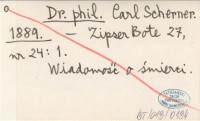 Dr. phil. Carl Scherner.
1889. — Zipser Bote 27,
nr 24: 1.
Wiadomość o śmierci.